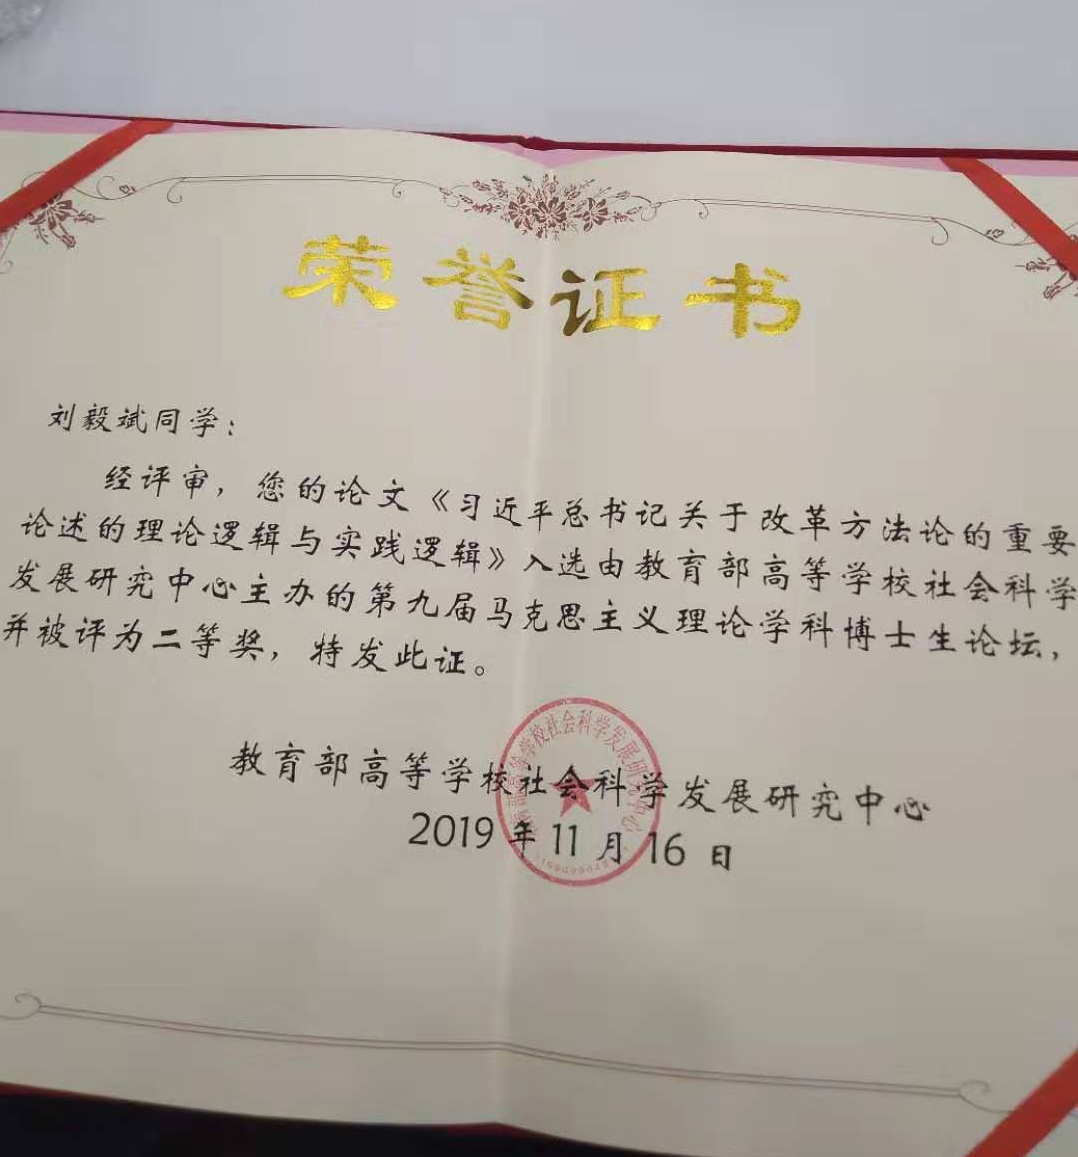 荣誉证书
刘毅斌同学：
经评审，您的论文《习近平总书记关于改革方法论的重要
论述的理论逻辑与实践逻辑》入选由教育部高等学校社会科学
发展研究中心主办的第九届马克思主义理论学科博士生论坛，
并被评为二等奖，特发此证。
教育部高等学校社会科学发展研究中心
2019年11月16日
教育部高等学校社会科学发展研究中心